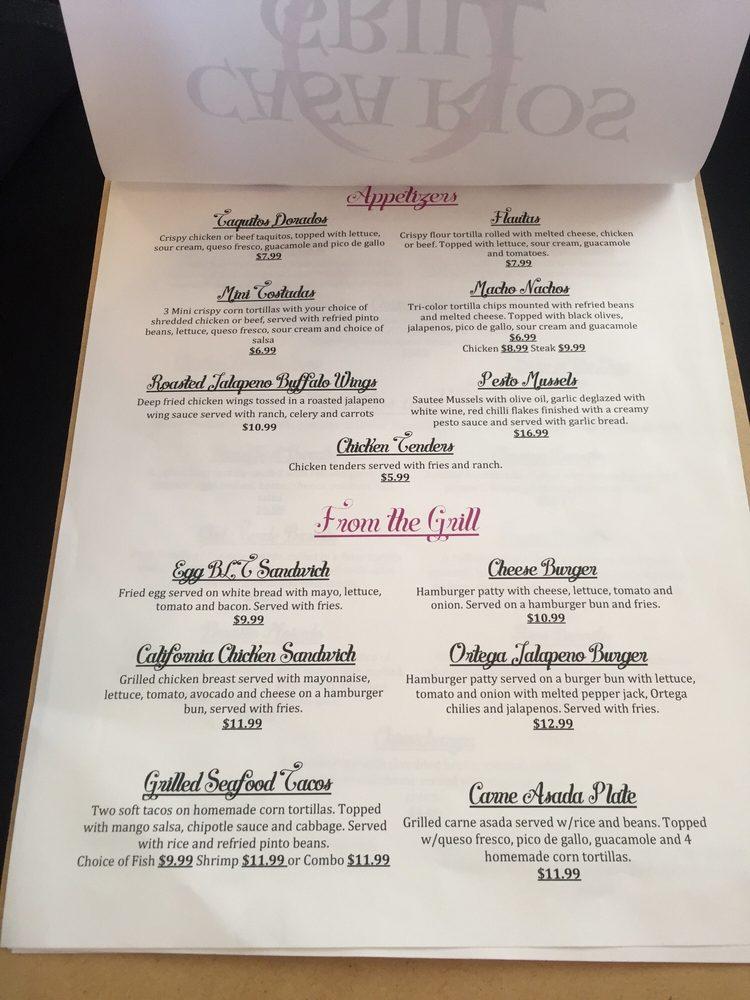 GRILL
CASA RIOS
Appetizers
Taquitos Dorados
Crispy chicken or beef taquitos, topped with lettuce,
sour cream, queso fresco, guacamole and pico de gallo
$7.99
Flautas
Crispy flour tortilla rolled with melted cheese, chicken
or beef. Topped with lettuce, sour cream, guacamole
and tomatoes.
$7.99
Mini Tostadas
3 Mini crispy corn tortillas with your choice of
shredded chicken or beef, served with refried pinto
beans, lettuce, queso fresco, sour cream and choice of
salsa
$6.99
Macho Nachos
Tri-color tortilla chips mounted with refried beans
and melted cheese. Topped with black olives,
jalapenos, pico de gallo, sour cream and guacamole
$6.99
Chicken $8.99 Steak $9.99
Roasted Jalapeno Buffalo Wings
Deep fried chicken wings tossed in a roasted jalapeno
wing sauce served with ranch, celery and carrots
$10.99
Pesto Mussels
Sautee Mussels with olive oil, garlic deglazed with
white wine, red chilli flakes finished with a creamy
pesto sauce and served with garlic bread.
$16.99
Chicken Tenders
Chicken tenders served with fries and ranch.
$5.99
From the Grill
Egg BLT Sandwich
Fried egg served on white bread with mayo, lettuce,
tomato and bacon. Served with fries.
$9.99
Cheese Burger
Hamburger patty with cheese, lettuce, tomato and
onion. Served on a hamburger bun and fries.
$10.99
California Chicken Sandwich
Grilled chicken breast served with mayonnaise,
lettuce, tomato, avocado and cheese on a hamburger
bun, served with fries.
$11.99
Ortega Jalapeno Burger
Hamburger patty served on a burger bun with lettuce,
tomato and onion with melted pepper jack, Ortega
chilies and jalapenos. Served with fries.
$12.99
Grilled Seafood Tacos
Two soft tacos on homemade corn tortillas. Topped
with mango salsa, chipotle sauce and cabbage. Served
with rice and refried pinto beans.
Choice of Fish $9.99 Shrimp $11.99 or Combo $11.99
Carne Asada Plate
Grilled carne asada served w/rice and beans. Topped
w/queso fresco, pico de gallo, guacamole and 4
homemade corn tortillas.
$11.99